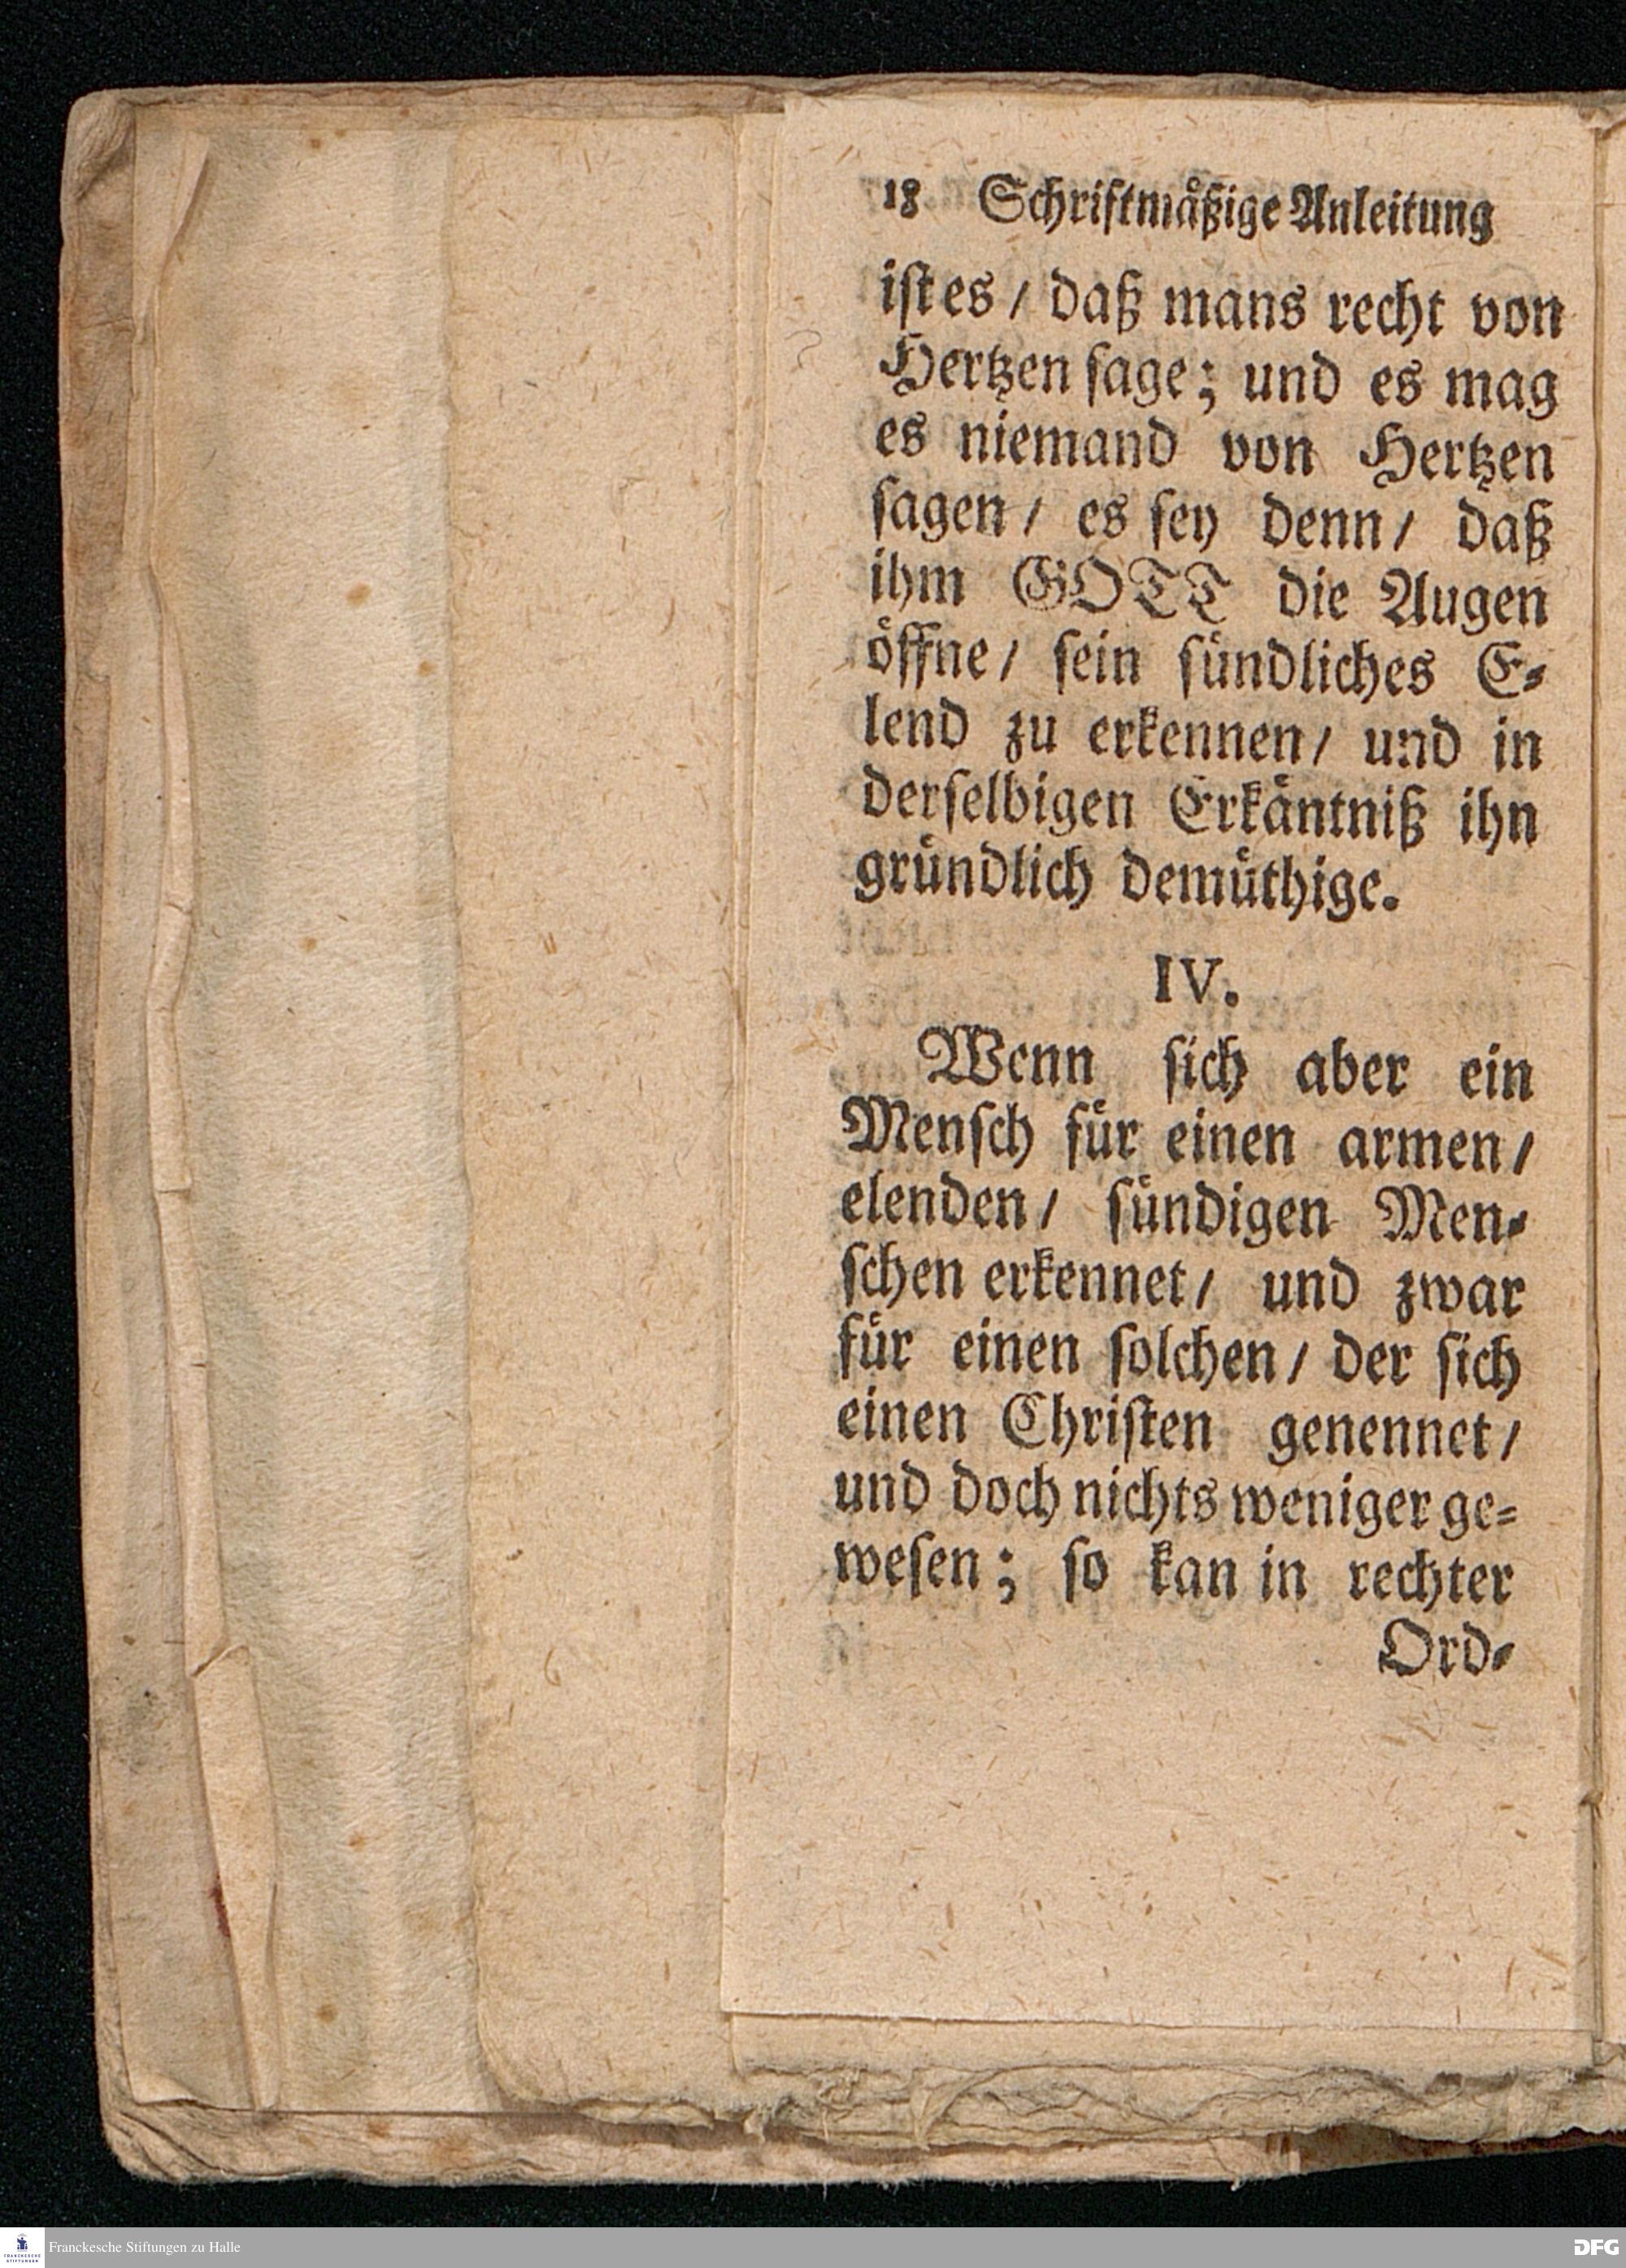 18 Schriftmäßige Anleitung
iſt es / daß mans recht von
Hertzen ſage; und es mag
es niemand von Hertzen
ſagen / es ſey denn / daß
ihm GOTT die Augen
öffne / ſein ſündliches E-
lend zu erkennen / und in
derſelbigen Erkäntniß ihn
gründlich demüthige.
IV.
Wenn ſich aber ein
Menſch für einen armen /
elenden / ſündigen Men-
ſchen erkennet / und zwar
für einen ſolchen / der ſich
einen Chriſten genennet /
und doch nichts weniger ge-
weſen; ſo kan in rechter
Ord-
Franckesche Stiftungen zu Halle
DFG